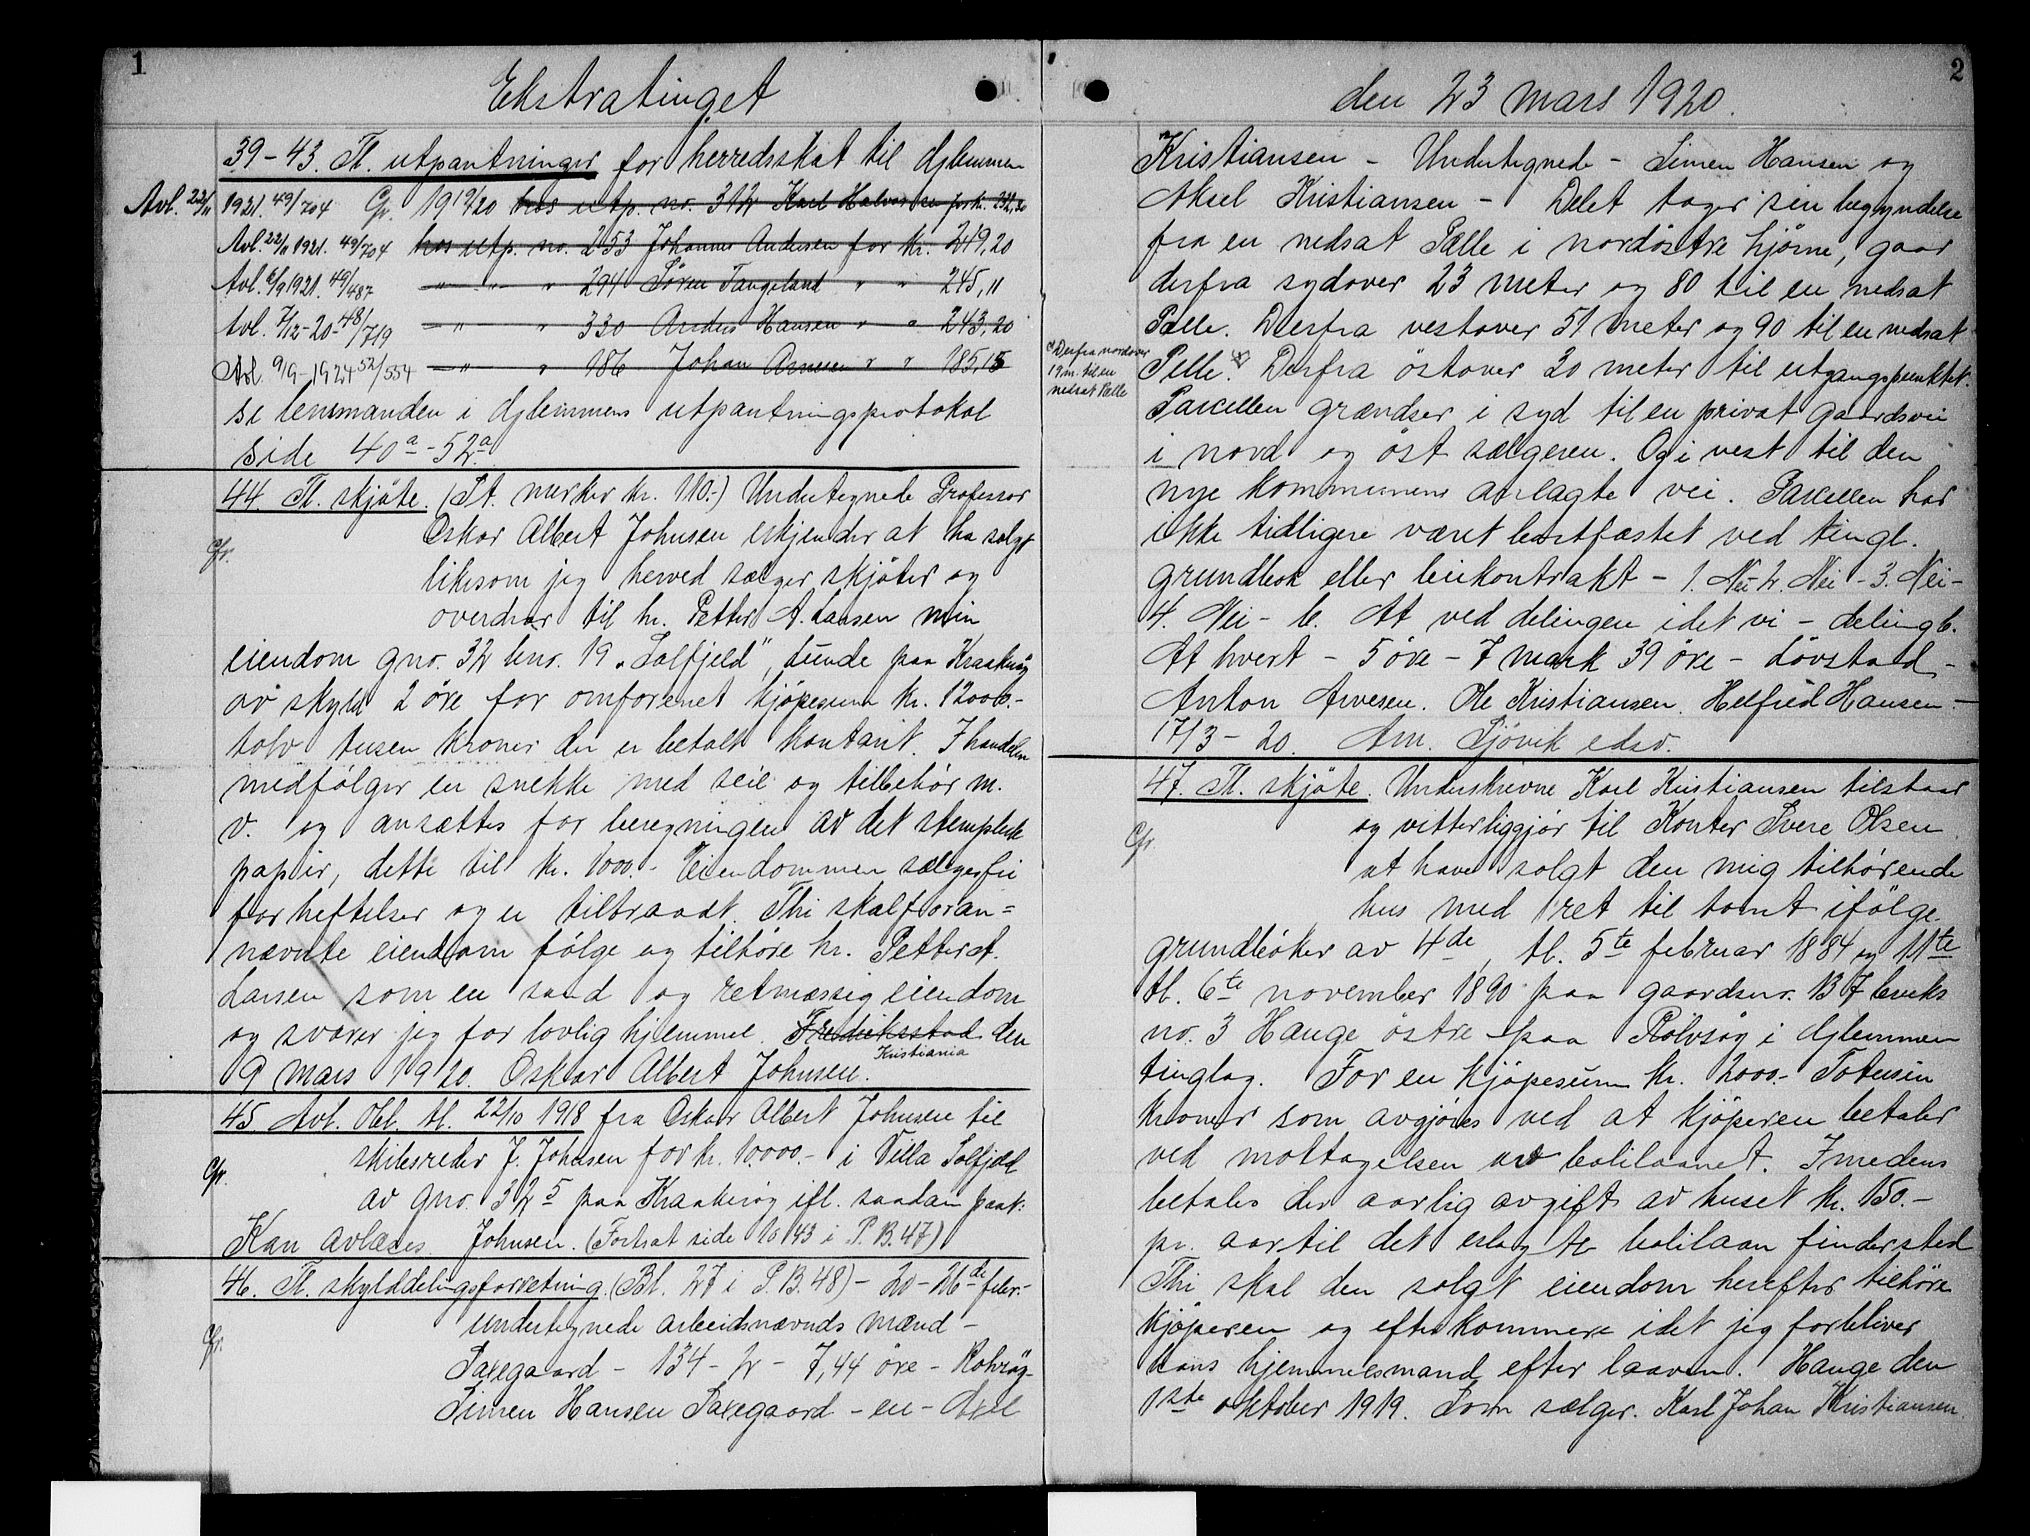 1
Ekstratinget
39-43. Tl. utpantninger for herredsskat til Glemmen
Avl. 22/11 1921. 49/704 Cfr. 1919/20 hos utp. no. 312 Karl Halvorsen for kr. 232,20
Avl. 22/11 1921. 49/704 hos utp. no. 253 Johannes Andersen for kr. 249,20
Avl. 6/9 1921. 49/487 — " — " 294 Søren Tangeland " " 245,11
Avl. 7/12-20 48/719 — " — " 330 Anders Hansen " " 243,20
Avl. 9/9-1924 52/554 — " — " 186 Johan Arnesen " " 185,15
se lensmanden i Glemmens utpantningsprotokol
side 40a - 52a
44. Tl. skjøte. (St. merker kr. 110.-) Undertegnede Professor
Cfr. Oskar Albert Johnsen erkjender at ha solgt
likesom jeg herved sælger skjøter og
overdrar til hr. Petter A. Larsen min
eiendom gno. 32 bno. 19 „Solfjeld", Lunde paa Kraakerøy
av skyld 2 øre for omforenet kjøpesum kr. 12000.-
tolv tusen kroner der er betalt kontant. I handelen
medfølger en snekke med seil og tilbehør m.
v. og ansættes for beregningen av det stemplede
papir, dette til kr. 1000.- Eiendommen sælges fri
for heftelser og er tiltraadt. Thi skal foran=
nævnte eiendom følge og tilhøre hr. Petter A.
Larsen som en sand og retmæssig eiendom
og svarer jeg for lovlig hjemmel. Fredriksstad den
Kristiania
9 mars 1920. Oskar Albert Johnsen.
45. Avl. Obl. tl. 22/10 1918 fra Oskar Albert Johnsen til
skibsreder J. Johnsen for kr. 10.000.- i Villa Solfjeld
Cfr. av gno. 32 5 paa Kraakerøy ifl. saadan pant.
Kan avlæses. Johnsen. (Fortsat side 143 i P.B. 47)
46. Tl. skylddelingsforretning. (Bl. 27 i P.B. 48) - 20 - 26de febr.-
Cfr. undertegnede arbeidsnævnds mænd -
Saxegaard - 134 - 2 - 7,44 øre - Rolvsøy-
Simen Hansen Saxegaard - en - Aksel
2
den 23 mars 1920.
Kristiansen - Undertegnede - Simen Hansen og
Aksel Kristiansen - Delet tager sin begyndelse
fra en nedsat Pælle i nordøstre hjørne, gaar
derfra sydover 23 meter og 80 til en nedsat
Pælle. Derfra vestover 51 meter og 90 til en nedsat
Derfra nordover
19 m. til en
nedsat Pælle
Pelle. Derfra østover 20 meter til utgangspunktet.
Parcellen grændser i syd til en privat gaardsvei
i nord og øst sælgeren. Og i vest til den
nye kommunens anlagte vei. Parcellen har
ikke tidligere været bortfæstet ved tingl.
grundbok eller leiekontrakt - 1. Nei - 2. Nei - 3. Nei -
4. Nei - b. At ved delingen idet vi - deling b.
At hvert - 5 øre - 7 mark 39 øre - Løvstad -
Anton Arvesen. Ole Kristiansen. Helfred Hansen -
17/3 - 20. Arn. Sjøvik edsv.
47. Tl. skjøte. Underskrevne Karl Kristiansen tilstaar
Cfr. og vitterliggjør til Sverre Olsen
at have solgt den mig tilhørende
hus med ret til tomt ifølge
grundbøker av 4de, tl. 5te februar 1884 og 11te
tl. 6te november 1890 paa gaardsnr. 137 bruks
no. 3 Hauge østre paa Rolvsøy i Glemmen
tinglag. For en kjøpesum kr. 2000.- Totusin
kroner som avgjøres ved at kjøperen betaler
ved mottagelsen av bolilaanet. Imedens
betales der aarlig avgift av huset kr. 150.-
pr. aar til det erlagte bolilaan finder sted
Thi skal den solgt eiendom herefter tilhøre
kjøperen og efterkommere idet jeg forbliver
hans hjemmelsmand efter laaven. Hauge den
1ste oktober 1919. Som sælger. Karl Johan Kristiansen